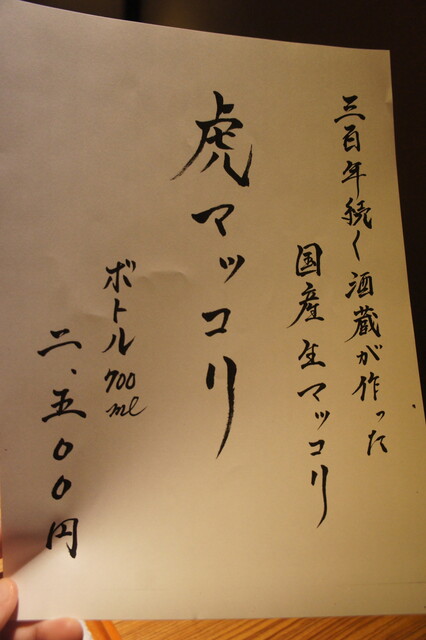 三百年続く酒蔵が作った
国産生マッコリ
虎マッコリ
ボトル700ml
二、五00円